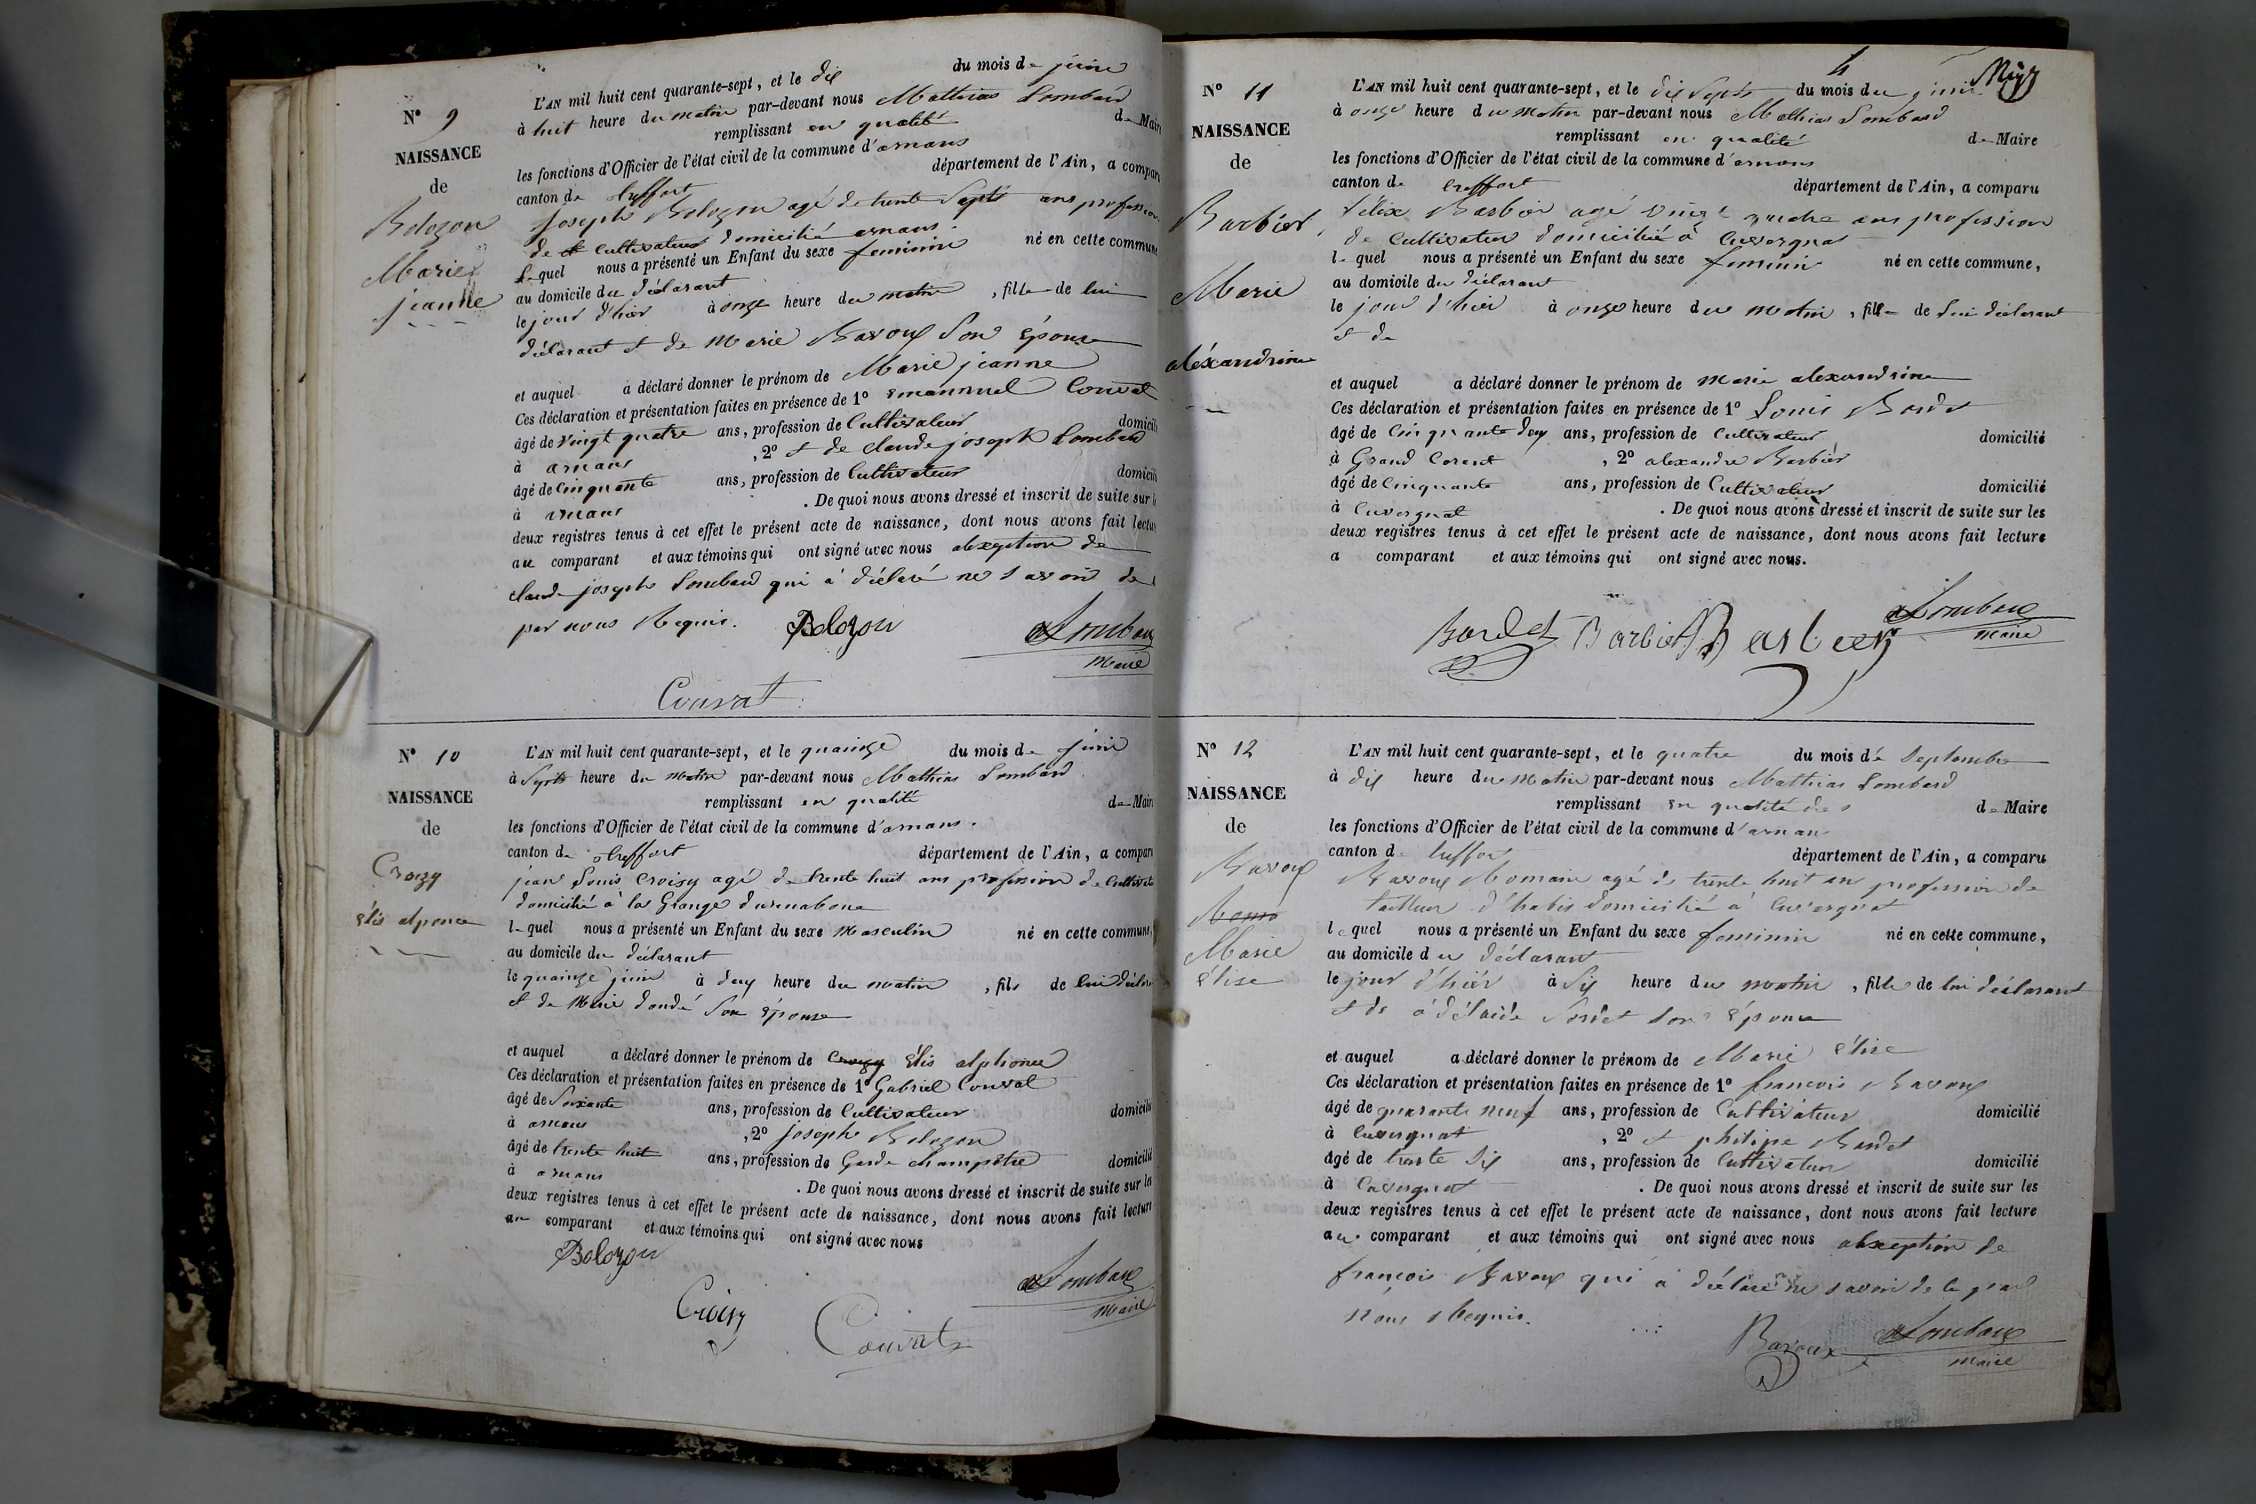 N° 9
NAISSANCE
de
Bologon
Marie
jeanne
L'AN mil huit cent quarante-sept, et le dix du mois de juin
à huit heure du matin par-devant nous Matthias Lombard
remplissant en qualité de Mair
les fonctions d'Officier de l'état civil de la commune d'arnans
canton de treffort département de l'Ain, a compar
joseph Bologon agé de trente Septs ans profession
de cultivateur domicilié arnans.
lequel nous a présenté un Enfant du sexe feminin né en cette commune
au domicile du déclarant
le jour d'hier à onze heure du matin, fille de lui
déclarant et de Marie Bavoux Son épouse
et auquel a déclaré donner le prénom de Marie jeanne
Ces déclaration et présentation faites en présence de 1° emannuel Couvat
âgé de vingt quatre ans, profession de Cultivateur domicili
à arnans, 2° et de claude joseph Lombard
âgé de Cinquante ans, profession de Cultivateur domicili
à arnans. De quoi nous avons dressé et inscrit de suite sur l
deux registres tenus à cet effet le présent acte de naissance, dont nous avons fait lectur
au comparant et aux témoins qui ont signé avec nous alexeption de
claude joseph Lombard qui a déclaré ne savoir de
par nous Requis.
Bolozon
Lombard
Maire
Couvat
N° 10
NAISSANCE
de
Crozy
élis alponce
L'AN mil huit cent quarante-sept, et le quainze du mois de juin
à Septs heure du matin par-devant nous Mathias Lombard
remplissant en qualité de Mair
les fonctions d'Officier de l'état civil de la commune d'arnans.
canton de treffort département de l'Ain, a compar
jean Louis Croisy agé de trente huit ans profession de Cultivate
domicilié à la Grange
lequel nous a présenté un Enfant du sexe Masculin né en cette commune,
au domicile du déclarant
le quainze juin à deux heure du matin, fils de lui déclar
et de Marie dondé Son épouse
et auquel a déclaré donner le prénom de Crozy élis alphonce
Ces déclaration et présentation faites en présence de 1° Gabriel Couvat
âgé de Soixante ans, profession de Cultivateur domicilié
à arnans, 2° joseph Bologon
âgé de trente huit ans, profession de Garde champêtre domicilié
à arnans. De quoi nous avons dressé et inscrit de suite sur les
deux registres tenus à cet effet le présent acte de naissance, dont nous avons fait lecture
au comparant et aux témoins qui ont signé avec nous
Bolozon
Lombard
Maire
Croisy
Couvat
4
N° 11
NAISSANCE
de
Barbier,
Marie
aléxandrine
L'AN mil huit cent quarante-sept, et le dix Septs du mois du juin
à onze heure du Matin par-devant nous Mathias Lombard
remplissant en qualité de Maire
les fonctions d'Officier de l'état civil de la commune d'arnans
canton de treffort département de l'Ain, a comparu
félix Barbier agé vingt quatre ans profession
de Cultivateur domicilié à Cuvergnat
lequel nous a présenté un Enfant du sexe feminin né en cette commune,
au domicile du déclarant
le jour d'hier à onze heure du matin, fille de lui déclarant
et de
et auquel a déclaré donner le prénom de Marie alexandrine
Ces déclaration et présentation faites en présence de 1° Louis Bordet
âgé de Cinquante deux ans, profession de Cultivateur domicilié
à Grand Corent, 2° alexandre Barbier
âgé de Cinquante ans, profession de Cultivateur domicilié
à Cuvergnat. De quoi nous avons dressé et inscrit de suite sur les
deux registres tenus à cet effet le présent acte de naissance, dont nous avons fait lecture
a comparant et aux témoins qui ont signé avec nous.
Bordet Barbier Barbier
Lombard
Maire
N° 12
NAISSANCE
de
Bavoux
Marie
élise
L'AN mil huit cent quarante-sept, et le quatre du mois de Septembre
à dix heure du Matin par-devant nous Matthias Lombard
remplissant en qualité de Maire
les fonctions d'Officier de l'état civil de la commune d'arnans
canton d treffort département de l'Ain, a comparu
Bavoux Romain agé de trente huit an profession de
tailleur d'habis domicilié à Cuvergnat
lequel nous a présenté un Enfant du sexe feminin né en cette commune,
au domicile du déclarant
le jour d'hiér à Six heure du matin, fille de lui déclarant
et de adélaide Son épouse
et auquel a déclaré donner le prénom de Marie élise
Ces déclaration et présentation faites en présence de 1° francois Bavoux
âgé de quarante neuf ans, profession de Cultivateur domicilié
à Cuvergnat, 2° et philipe Bordet
âgé de trente Six ans, profession de Cultivateur domicilié
à Cuvergnat. De quoi nous avons dressé et inscrit de suite sur les
deux registres tenus à cet effet le présent acte de naissance, dont nous avons fait lecture
au comparant et aux témoins qui ont signé avec nous alexeption de
françois Bavoux qui a déclaré ne savoir de le par
Nous Requis.
Bavoux
Lombard
Maire